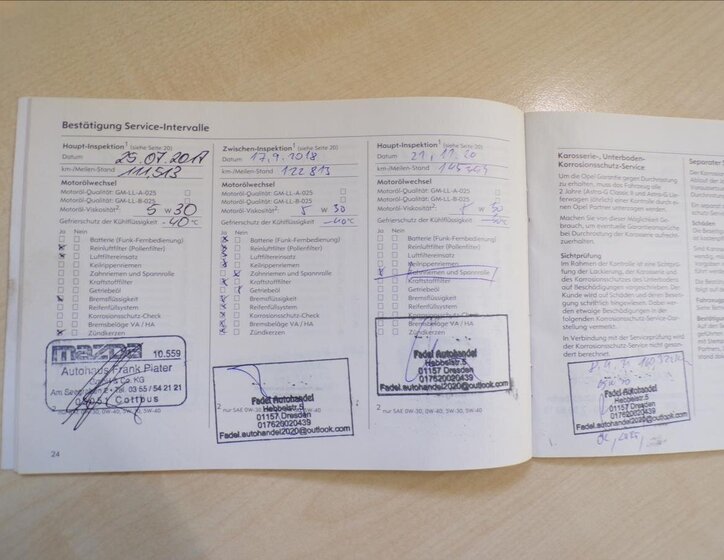 Bestätigung Service-Intervalle
Haupt-Inspektion¹ (siehe Seite 20)
Datum 25.07.2017
km-/Meilen-Stand 111513
Motorölwechsel
Motoröl-Qualität: GM-LL-A-025
Motoröl-Qualität: GM-LL-B-025
Motoröl-Viskosität²: 5 W 30
Gefrierschutz der Kühlflüssigkeit -40°C
Ja Nein
Batterie (Funk-Fernbedienung)
Reinluftfilter (Pollenfilter)
Luftfiltereinsatz
Keilrippenriemen
Zahnriemen und Spannrolle
Kraftstofffilter
Getriebeöl
Bremsflüssigkeit
Reifenfüllsystem
Korrosionsschutz-Check
Bremsbeläge VA / HA
Zündkerzen
mazda 10.559
Autohaus Frank Plater
GmbH & Co. KG
Tel. 03 55 / 54 21 21
03051 Cottbus
24
Zwischen-Inspektion¹ (siehe Seite 20)
Datum 17.9.2018
km-/Meilen-Stand 122813
Motorölwechsel
Motoröl-Qualität: GM-LL-A-025
Motoröl-Qualität: GM-LL-B-025
Motoröl-Viskosität²: 5 W 30
Gefrierschutz der Kühlflüssigkeit -40°C
Ja Nein
Batterie (Funk-Fernbedienung)
Reinluftfilter (Pollenfilter)
Luftfiltereinsatz
Keilrippenriemen
Zahnriemen und Spannrolle
Kraftstofffilter
Getriebeöl
Bremsflüssigkeit
Reifenfüllsystem
Korrosionsschutz-Check
Bremsbeläge VA / HA
Zündkerzen
Fadel Autohandel
Hebbelstr.5
01157 Dresden
017620020439
Fadel.autohandel2020@outlook.com
² nur SAE 0W-30,
Haupt-Inspektion¹ (siehe Seite 20)
Datum 21.11.20
km-/Meilen-Stand
Motorölwechsel
Motoröl-Qualität: GM-LL-A-025
Motoröl-Qualität: GM-LL-B-025
Motoröl-Viskosität²: 5 W 30
Gefrierschutz der Kühlflüssigkeit
Ja Nein
Batterie (Funk-Fernbedienung)
Reinluftfilter (Pollenfilter)
Luftfiltereinsatz
Keilrippenriemen
Zahnriemen und Spannrolle
Kraftstofffilter
Getriebeöl
Bremsflüssigkeit
Reifenfüllsystem
Korrosionsschutz-Check
Bremsbeläge VA / HA
Zündkerzen
Fadel Autohandel
Hebbelstr.5
01157 Dresden
017620020439
Fadel.autohandel2020@outlook.com
² nur SAE 0W-30, 0W-40, 5W-30, 5W-40
Karosserie-, Unterboden-
Korrosionsschutz-Service
Um die Opel Garantie gegen Durchrostung zu
erhalten, muss das Fahrzeug alle
2 Jahre
einer Kontrolle durch ei-
nen Opel Partner unterzogen werden.
Machen Sie von dieser Möglichkeit Ge-
brauch, um eventuelle Garantieansprüche
bei Durchrostung der Karosserie aufrecht-
zuerhalten.
Sichtprüfung
Im Rahmen der Kontrolle ist eine Sichtprü-
fung der Lackierung, der Karosserie und
des Korrosionsschutzes des Unterbodens
auf Beschädigungen vorgeschrieben. Der
Kunde wird auf Schäden und deren Besei-
tigung schriftlich hingewiesen. Dabei wer-
den etwaige Beschädigungen in der
folgenden Korrosionsschutz-Service-Dar-
stellung vermerkt.
In Verbindung mit der Serviceprüfung wird
der Korrosionsschutz-Service nicht geson-
dert berechnet.
Fadel Autohandel
Hebbelstr.5
01157 Dresden
017620020439
Fadel.autohandel2020@outlook.com
Separater